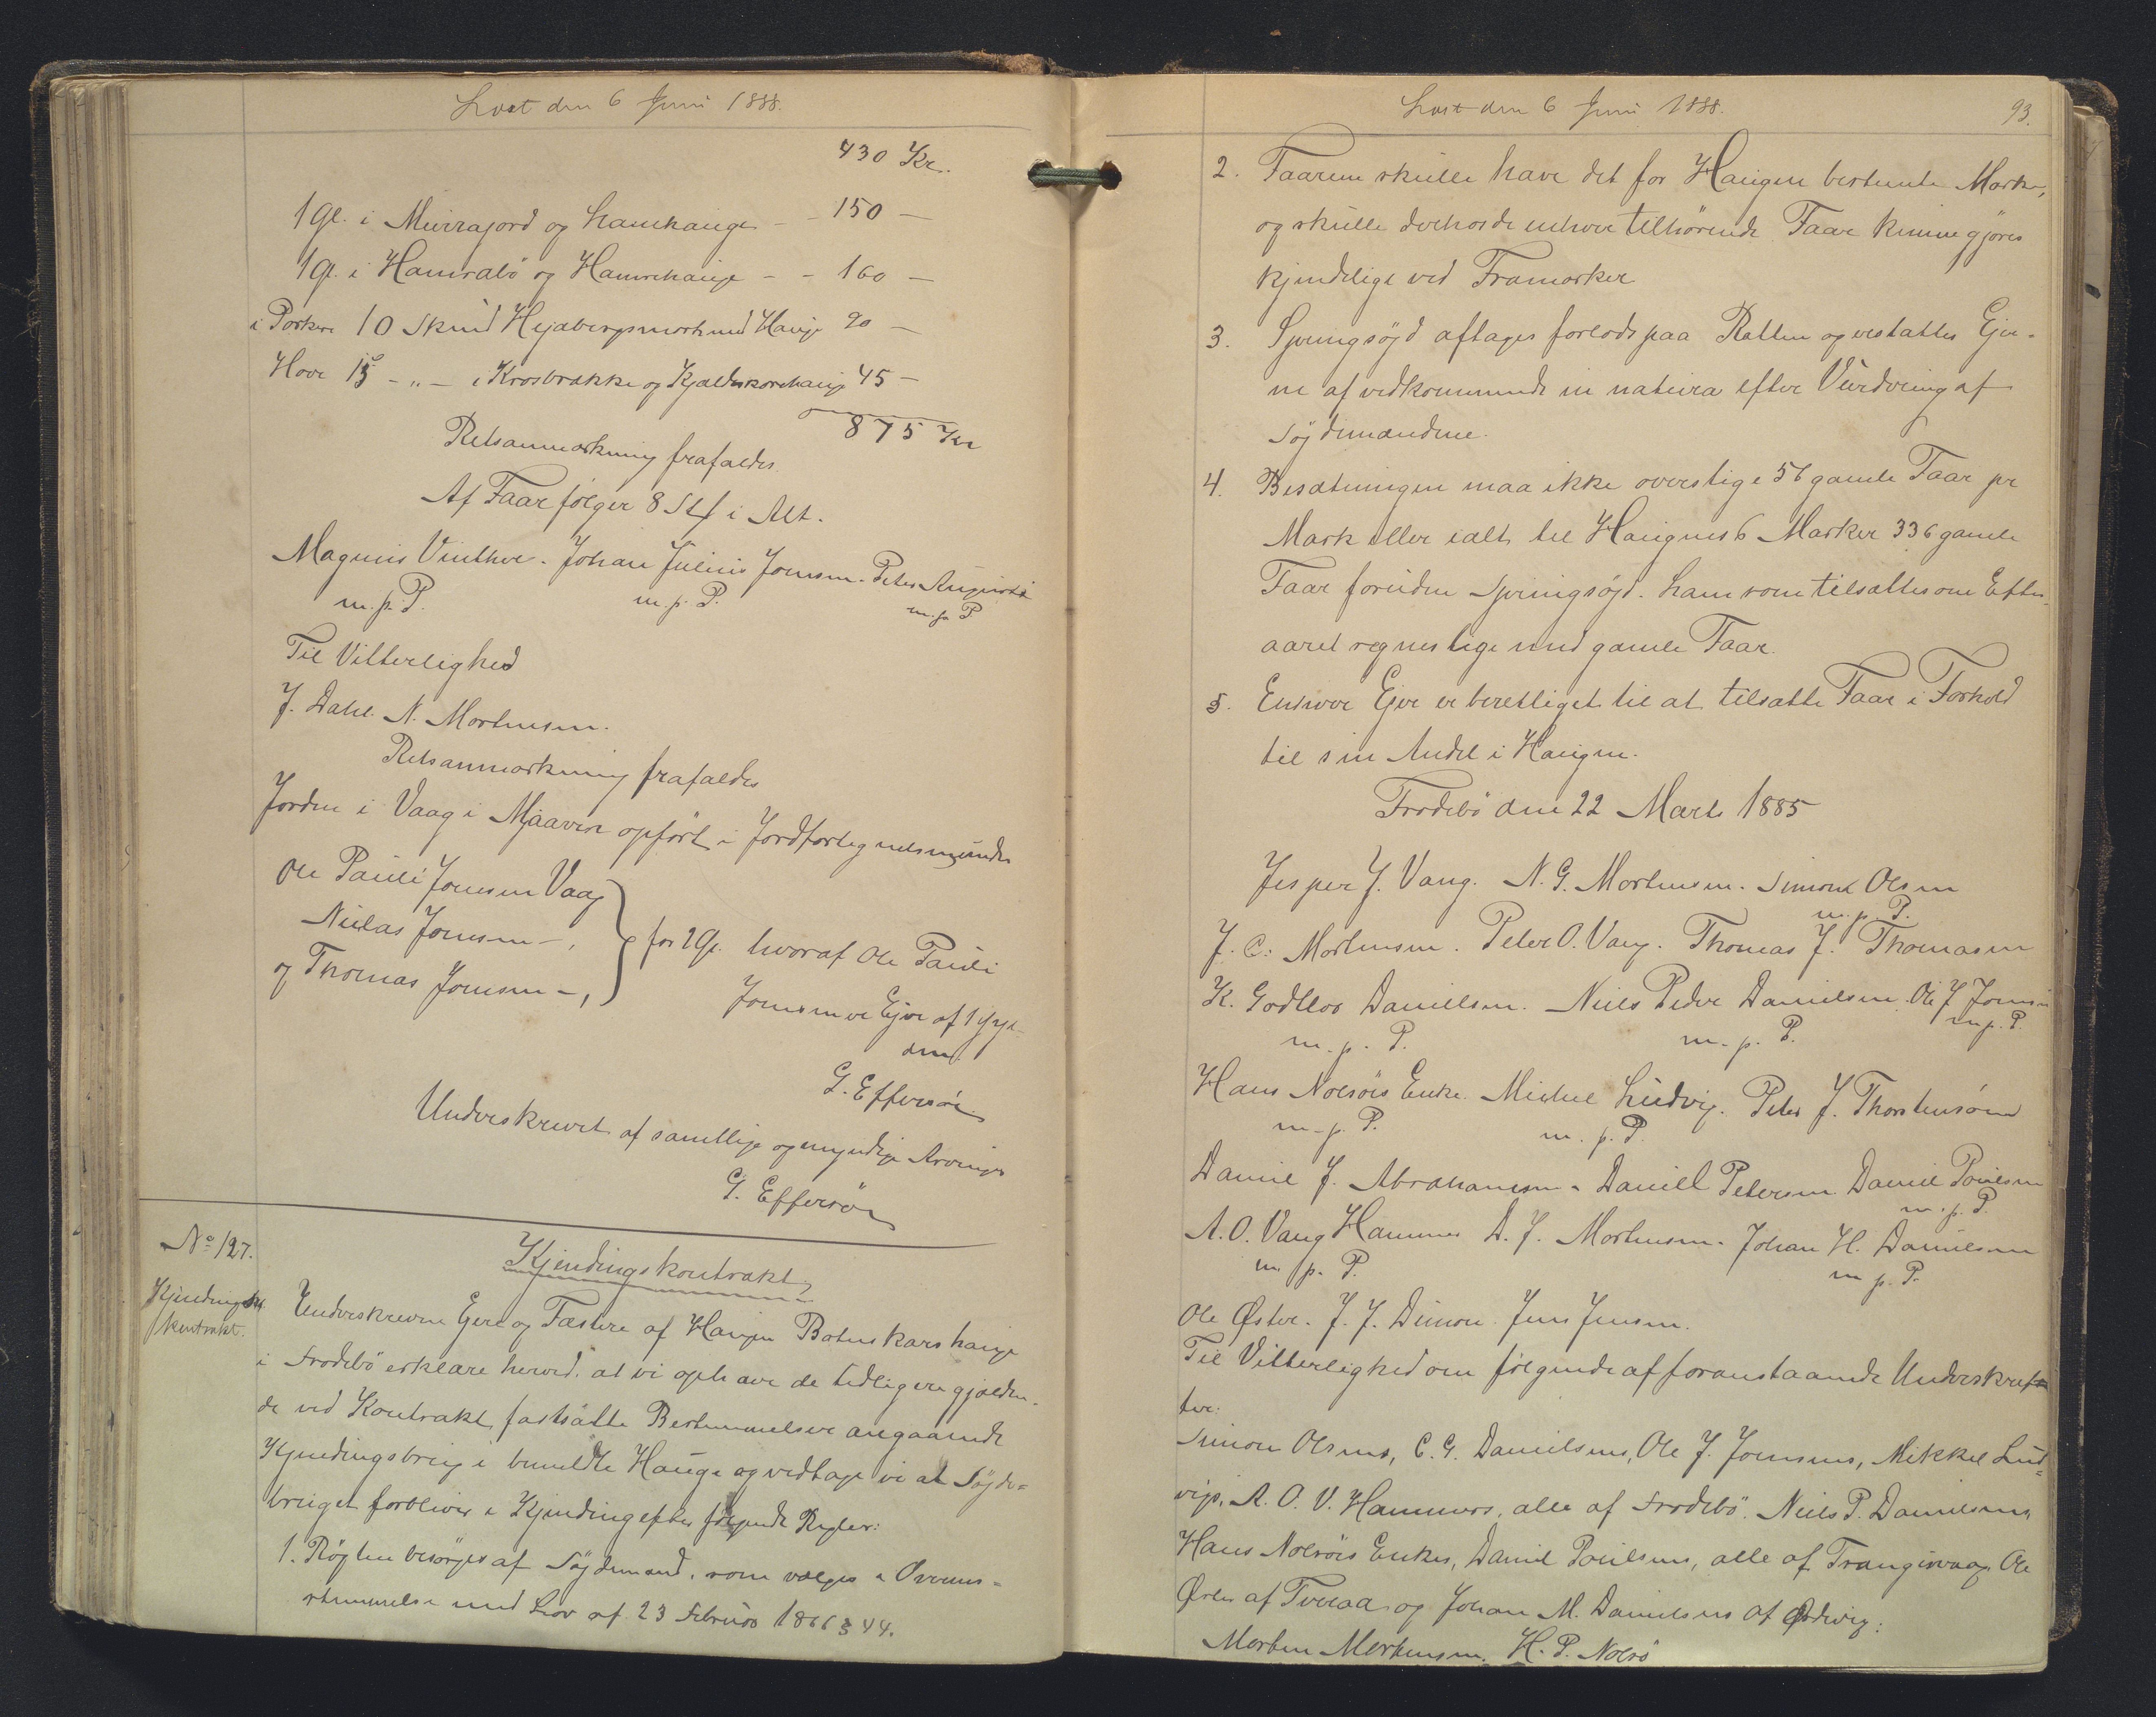 Læst den 6 Juni 1888.
430 Kr.
1 Gl. i Muirajord og Lamhauge - - 150 —
1 Gl. i Hamrabö og Hamrehauge - - 160 —
i Porkere 10 Skind Hejdabergsmark med Hauge 90 —
Hove 15 - „ - i Krosbrække og Kjældeskorehauge 45 —
875 Kr
Retsanmærkning frafaldes.
Af Faar følger 8 Stk i Alt.
Magnus Vinther. Johan Julius Joensen. Peter Augustin
m. p. P. m. p. P. m. p. P.
Til Vitterlighed
J. Dahl. N. Mortensen.
Retsanmærkning frafaldes
Jorden i Vaag i Maaven opført i Jordfortegnelsen under
Ole Pauli Joensen Vaag
Niclas Joensen -,
og Thomas Joensen -,
for 2 Gl. hvoraf Ole Pauli
Joensen er Ejer af 1 Gyl-
den.
G. Effersöe
Underskrevet af samtlige og myndige Arvinger
G. Effersöe
No 127.
Kjendings
kontrakt.
Kjendingskontrakt.
Underskrevne Ejere og Fæstere af Haugen Botnskarshauge
i Frodebö erklære herved, at vi ophæve de tidligere gjælden-
de ved Kontrakt fastsatte Bestemmelser angaaende
Kjendingsbrug i bemeldte Hauge og vedtage vi at Søjde-
bruget forbliver i Kjending efter følgende Regler:
1. Røgten besørges af Søjdemænd, som vælges i Overens-
stemmelse med Lov af 23 Februar 1866 § 44.
Læst den 6 Juni 1888.
93.
2. Faarene skulle have det for Haugen bestemte Mærke,
og skulle derhos de enhver tilhørende Faar kunne gjøres
kjendelige ved Framærker
3. Springsøjd aftages forlods paa Rætten og erstattes Ejer-
ne af vedkommende in natura efter Vurdering af
Søjdemændene.
4. Besætningen maa ikke overstige 56 gamle Faar pr
Mark eller ialt til Haugens 6 Marker 336 gamle
Faar foruden Springsøjd. Lam som tilsættes om Efter-
aaret regnes lige med gamle Faar.
5. Enhver Ejer er berettiget til at tilsætte Faar i Forhold
til sin Andel i Haugen.
Frodebö den 22 Marts 1885
Jesper J. Vang. N. G. Mortensen. Simon Olsen
m. p. P.
J. C. Mortensen. Peter O. Vang. Thomas J. Thomasen
K. Godtlov Danielsen. Niels Peder Danielsen. Ole J Joensen
m. p. P. m. p. P. m. p. P.
Hans Nolsöis Enke. Michel Ludvig. Peter J. Thorsteinsön
m. p. P. m. p. P.
Daniel J. Abrahamsen. Daniel Petersen Daniel Poulsen
m. p. P.
A. O. Vang Hammer D. J. Mortensen. Johan H. Danielsen
m. p. P. m. p. P.
Ole Øster. J. J. Dimon. Jens Jensen.
Til Vitterlighed om følgende af foranstaaende Underskrif
ter:
Simon Olsens, C. G. Danielsens, Ole J. Joensens, Mikkel Lud=
vigs, A. O. V. Hammers, alle af Frodebö. Niels P. Danielsens,
Hans Nolsöis Enkes, Daniel Poulsens, alle af Trangisvaag Ole
Østers af Tveraa og Johan M. Danielsens af Ørdevig:
Morten Mortensen. H. P. Nolsö